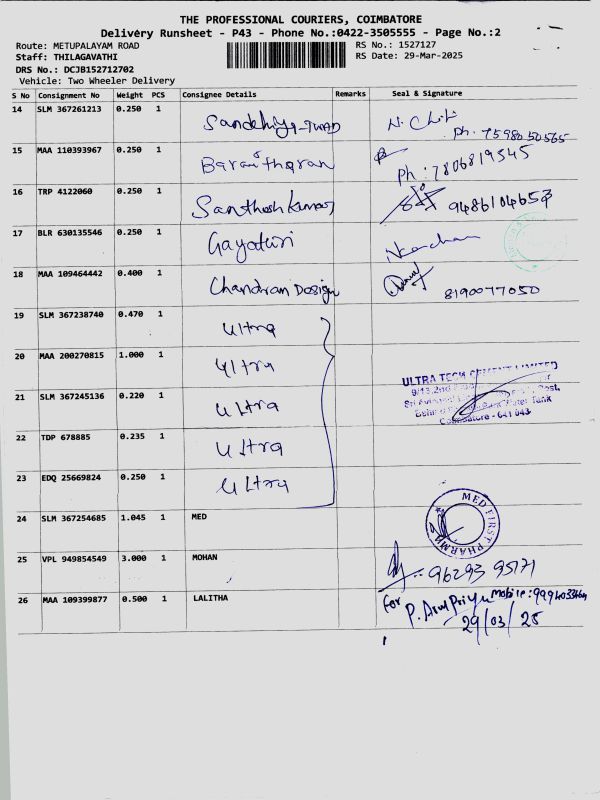 THE PROFESSIONAL COURIERS, COIMBATORE
Delivery Runsheet - P43 - Phone No.:0422-3505555 - Page No.:2
Route: METUPALAYAM ROAD RS No.: 1527127
Staff: THILAGAVATHI RS Date: 29-Mar-2025
DRS No.: DCJB152712702
Vehicle: Two Wheeler Delivery
S No Consignment No Weight PCS Consignee Details Remarks Seal & Signature
14 SLM 367261213 0.250 1 Sandehiya-TWAD N. Chiti
Ph: 7598050565
15 MAA 110393967 0.250 1 Baranitharan Ph: 7806819345
16 TRP 4122060 0.250 1 Santhosh Kumar 9486104653
17 BLR 630135546 0.250 1 Gayathri
18 MAA 109464442 0.400 1 Chandran Design 8190077050
19 SLM 367238740 0.470 1 Ultra
20 MAA 200270815 1.000 1 Ultra
ULTRA TECH CEMENT LIMITED
21 SLM 367245136 0.220 1 Ultra
Coimbatore - 641 043
22 TDP 678885 0.235 1 Ultra
23 EDQ 25669824 0.250 1 Ultra
24 SLM 367254685 1.045 1 MED MED FIRST PHARMA
25 VPL 949854549 3.000 1 MOHAN 96293 95171
26 MAA 109399877 0.500 1 LALITHA for P. Arul Priya Mobile:
29/03/25